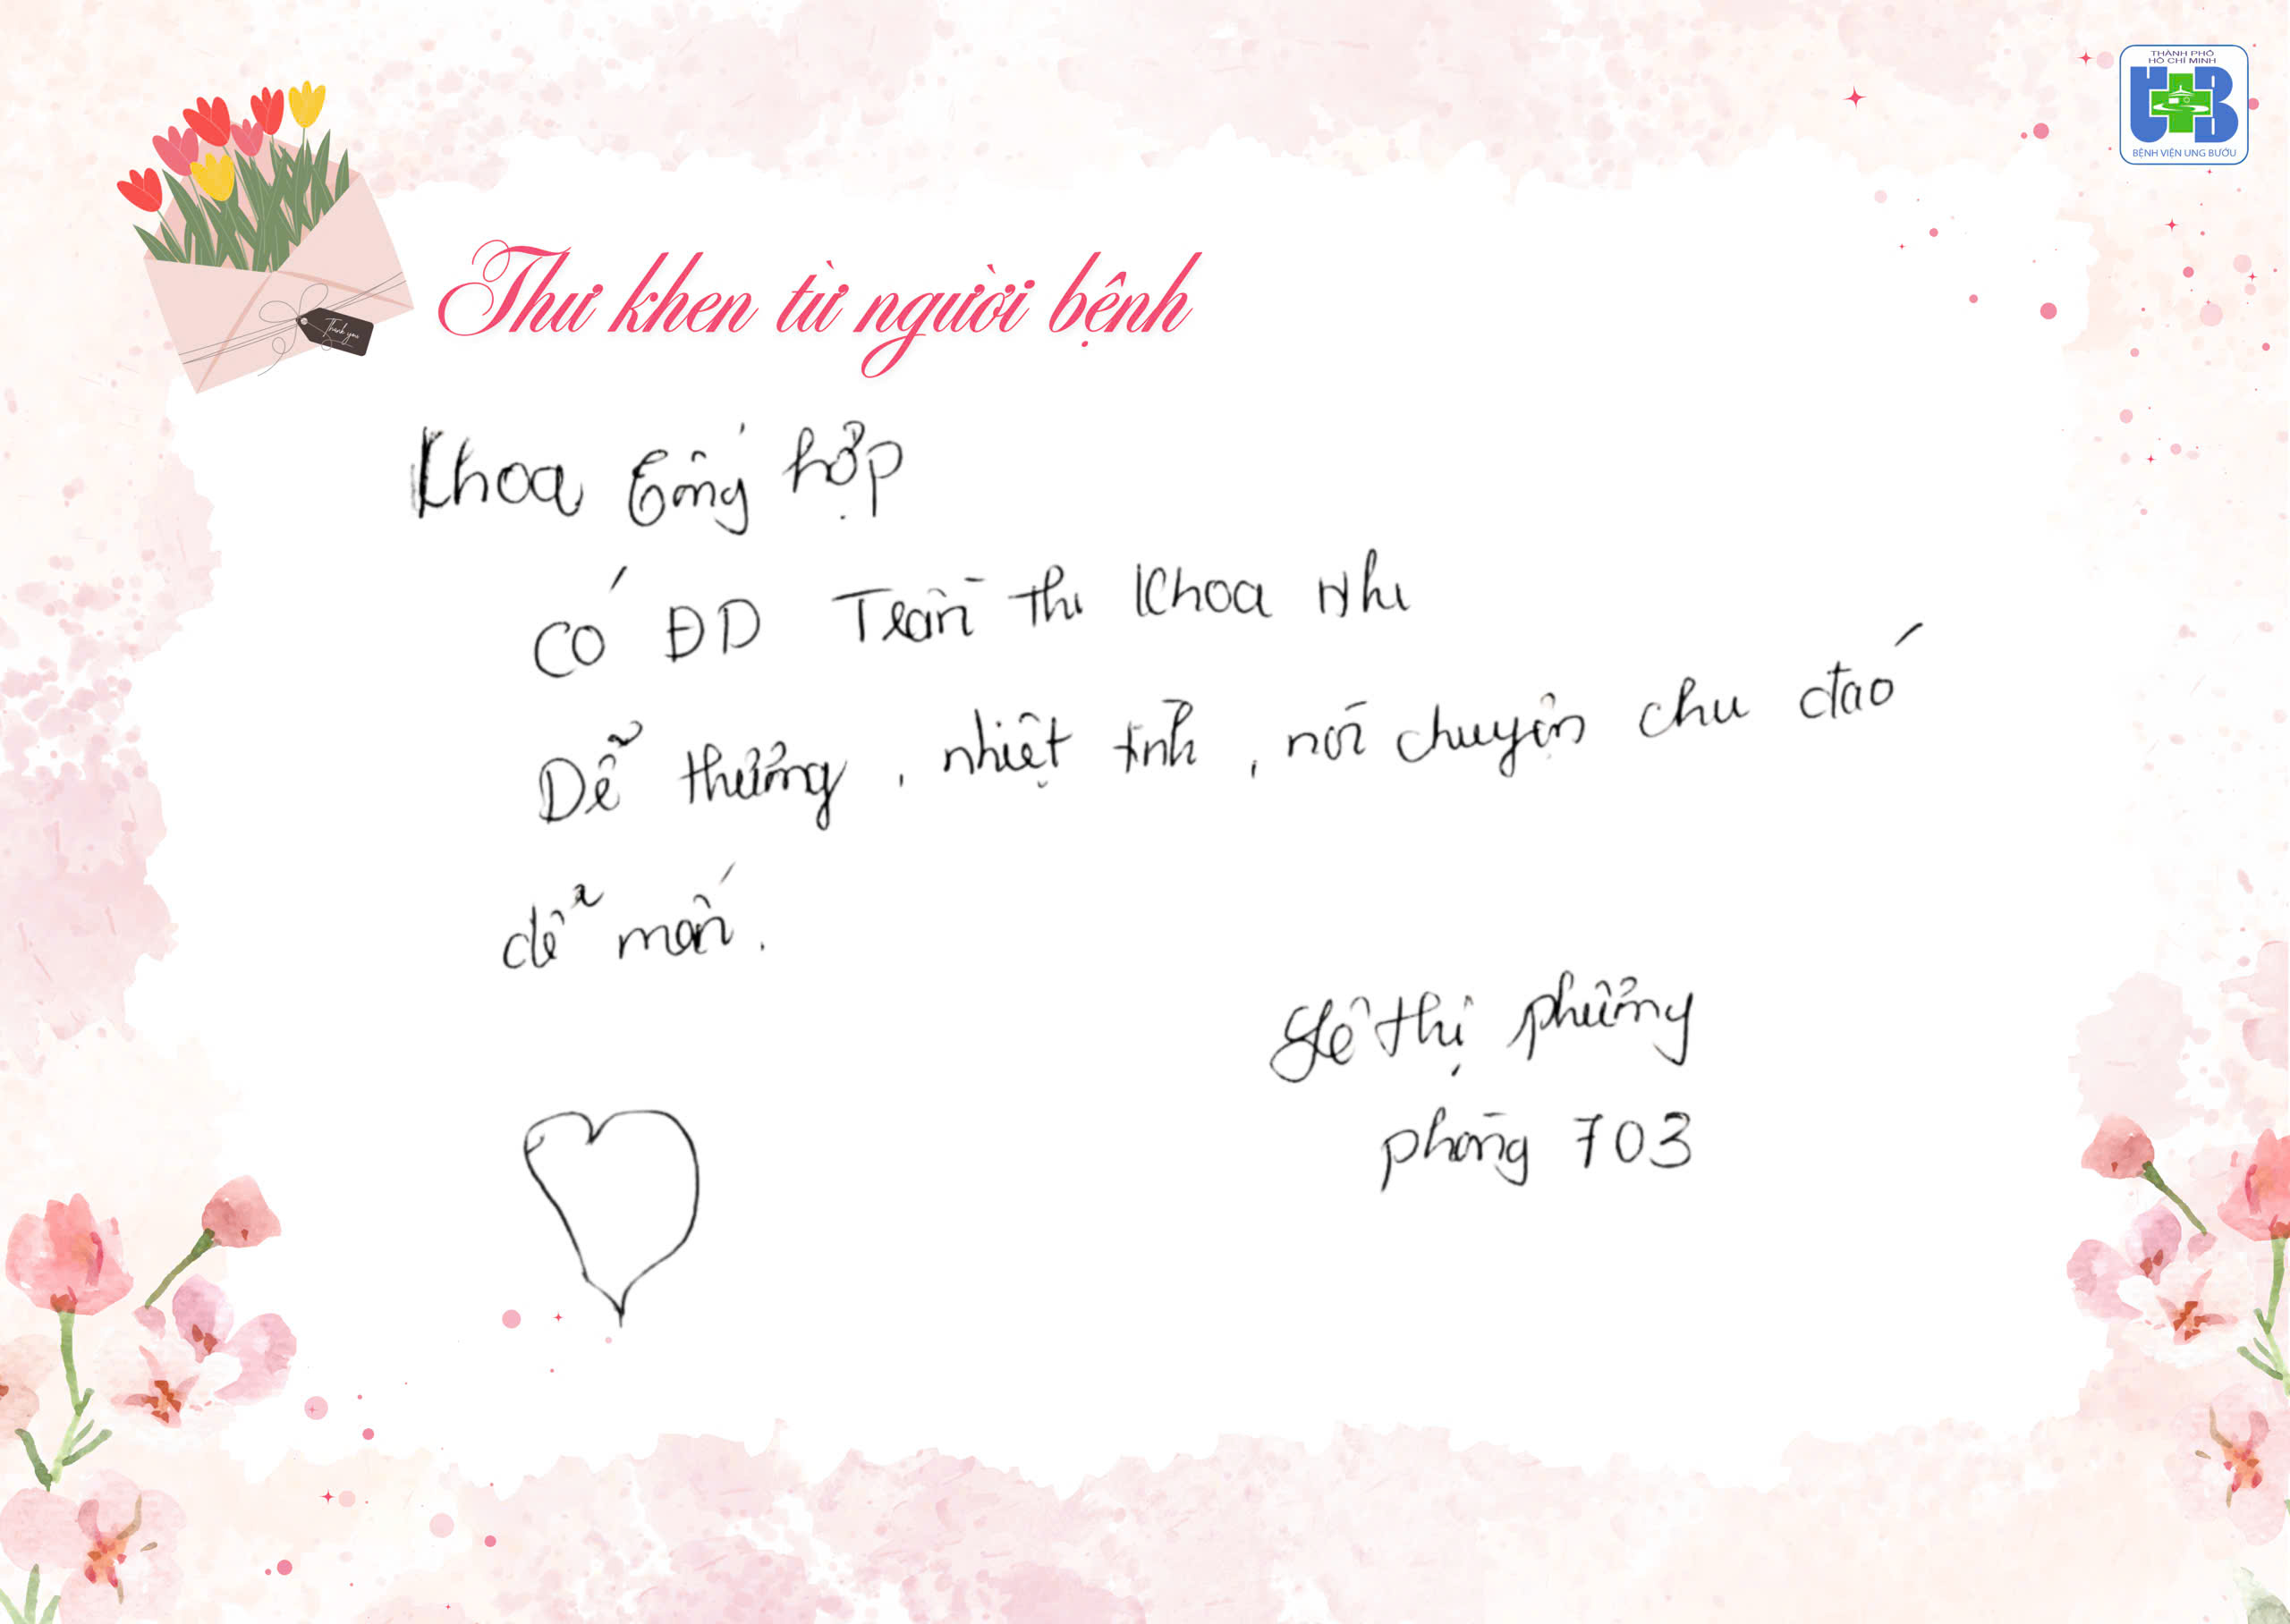 THÀNH PHỐ
HỒ CHÍ MINH
UB
BỆNH VIỆN UNG BƯỚU
Thank you
Thư khen từ người bệnh
Khoa Tổng hợp
Có ĐD Trần Thị Khoa Nhi
Dễ thương, nhiệt tình, nói chuyện chu đáo
dễ mến.
Lê Thị Phương
phòng 703